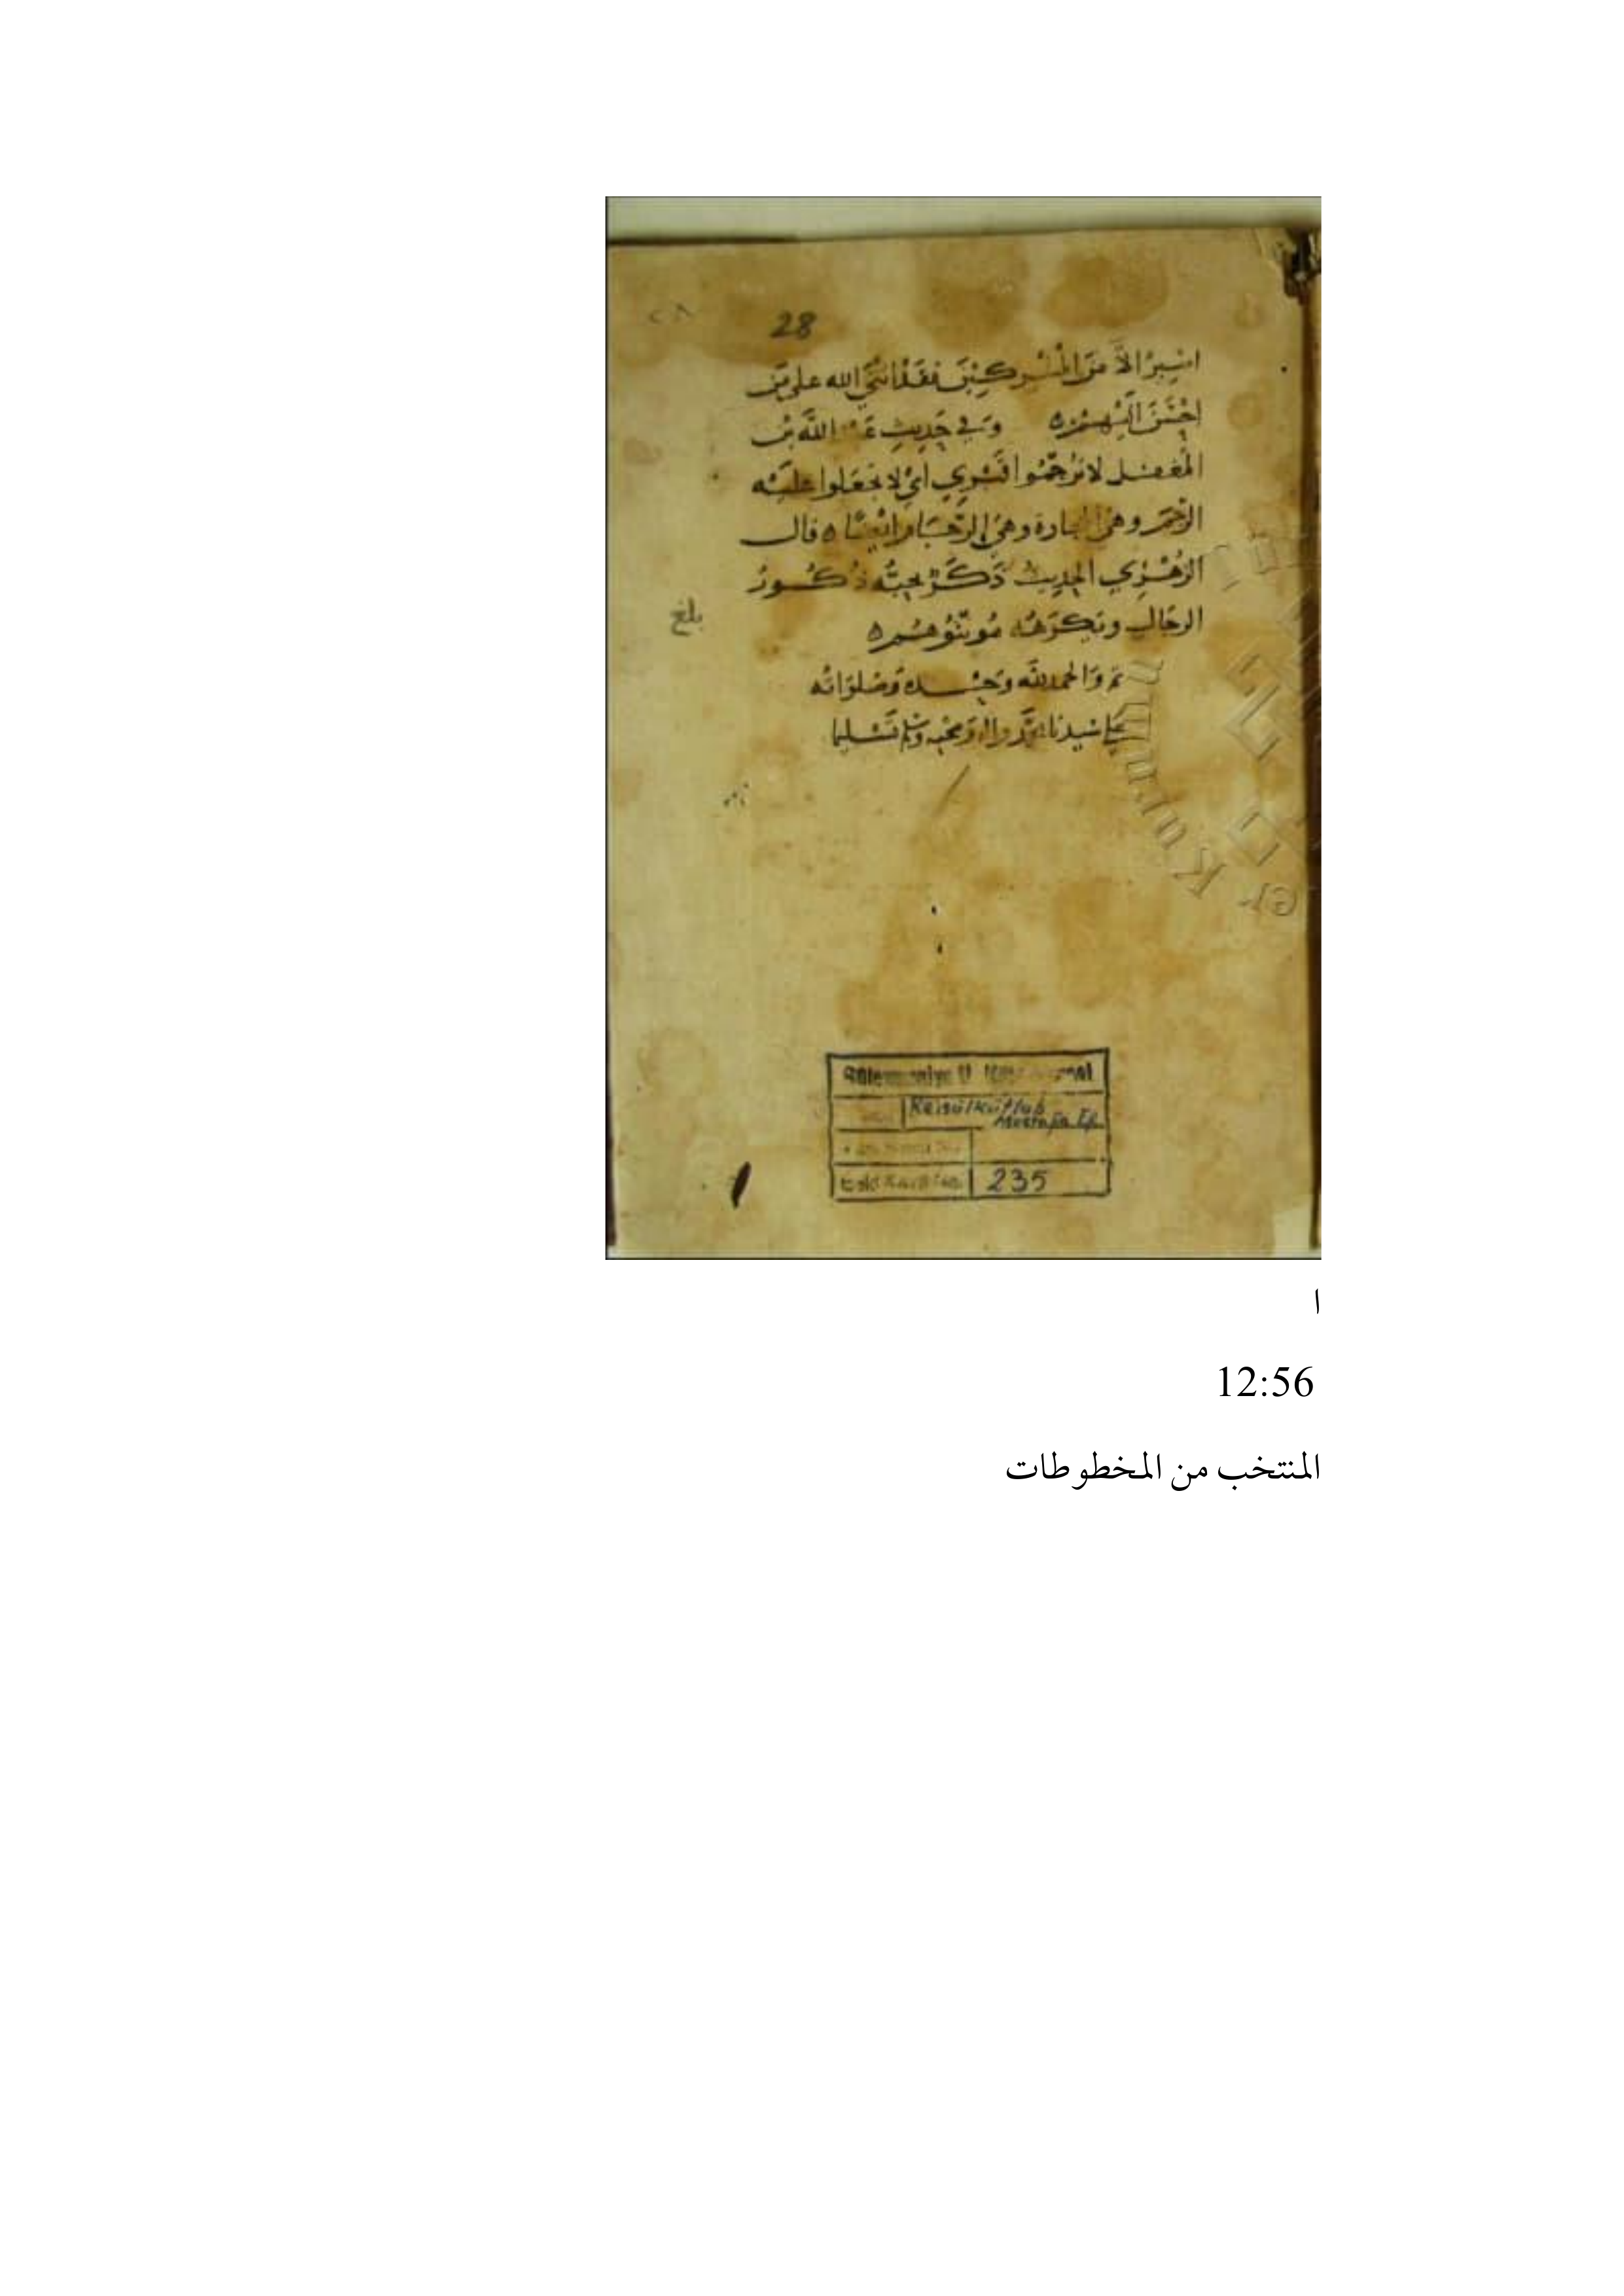 ٢٨
28
اسير الا من المشركين فقد اثنى الله على من
احسن اليهم وفي حديث عبد الله بن
المغفل لا ترجموا قبري اي لا تجعلوا عليه
الرجم وهي الحجارة وهي الرجام ايضا قال
الزهري الحديث ذكر يحبه ذكور
الرجال ويكرهه مؤنثوهم
بلغ
تم والحمد لله وحده وصلواته
على سيدنا محمد واله وصحبه وسلم تسليما
Süleymaniye U. Kütüphanesi
Reisülküttab
Mustafa Ef.
235
ا
12:56
المنتخب من المخطوطات